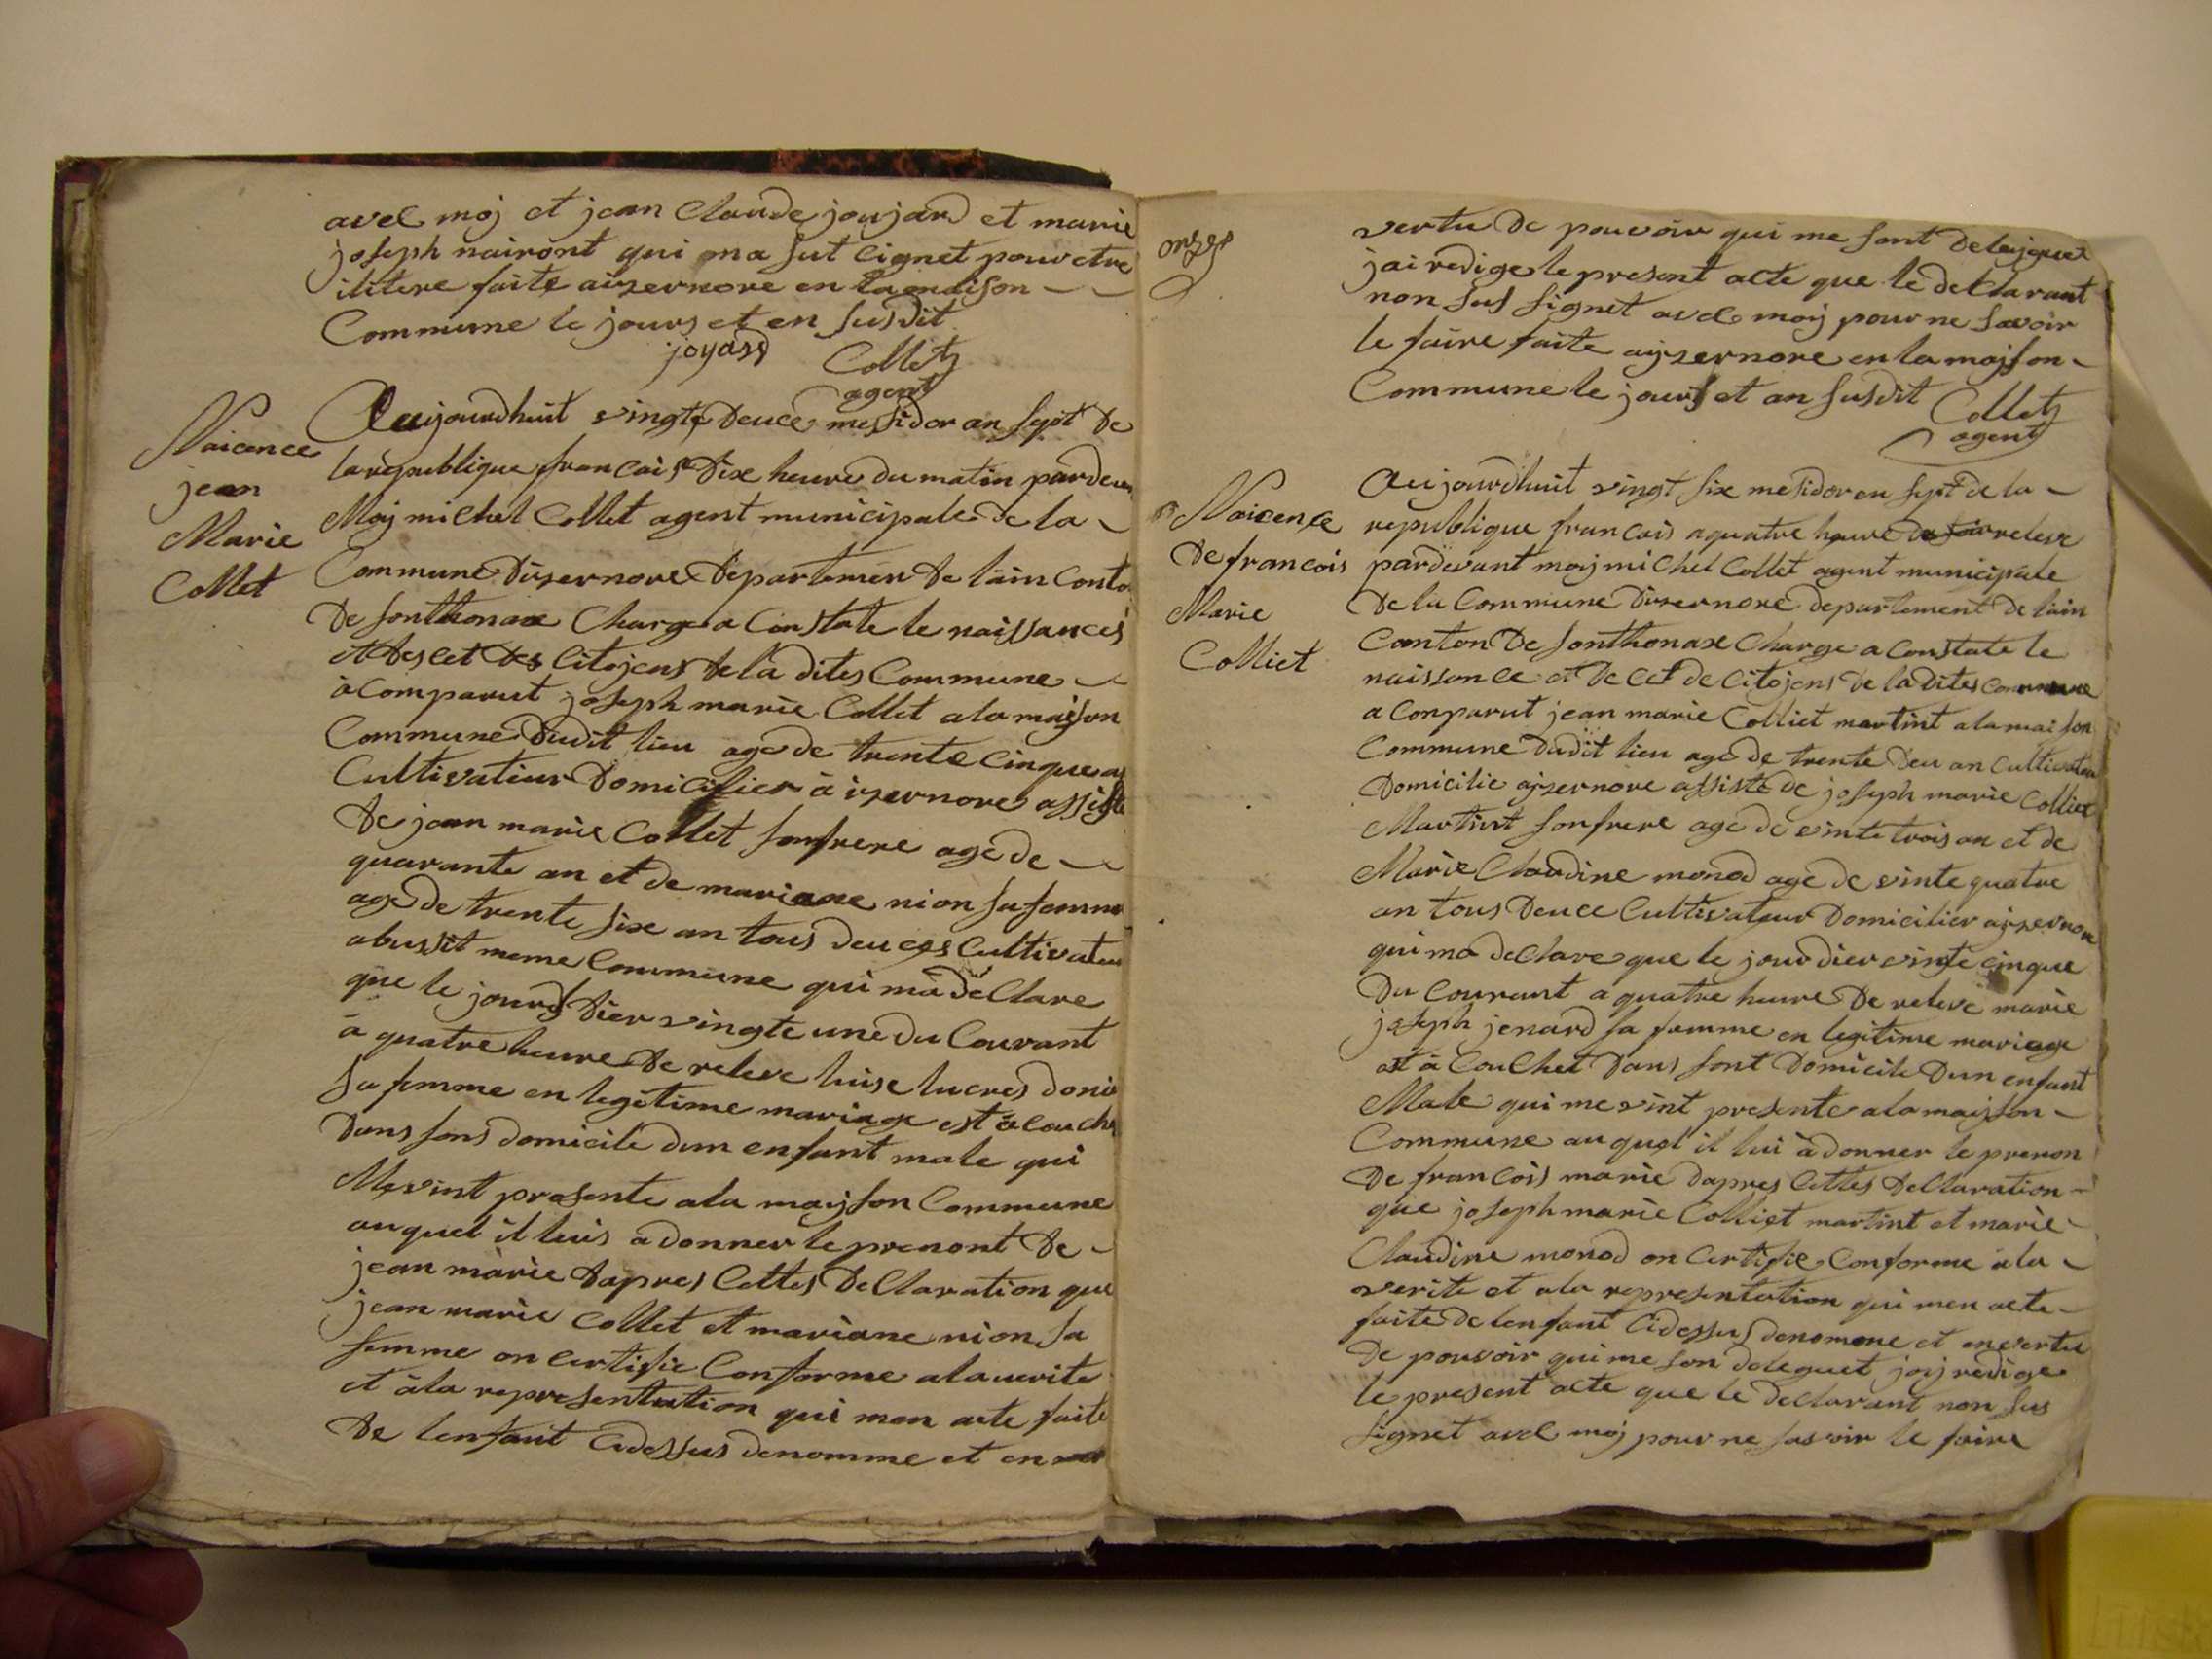 avec moj et jean Claude joujard et marie
joseph nairont qui ona sut cignet pour etre
ilitere faite aizernore en la maison
Commune le jours et en susdit
joyard Collet
agent
Naicence
jean
Marie
Collet
Aujourdhuit vingte deuce messidor an sept de
la republique francais dix heure du matin pardevan
Moj michel Collet agent municipale de la
Commune dizernore departemen de lain Conto
de sonthonax Charge a Constate le naissances
et deset des Citojens de la dites Commune
à Comparut joseph marie Collet a la maison
Commune dudit lieu age de trente cinque an
Cultivateur domicilier à izernore assiste
de jean marie Collet son frere age de
quarante an et de mariane nion sa femme
age de trente six an tous deuces Cultivateu
abussit meme Commune qui mà deClare
que le jours dier vingte une du Courant
à quatre heure de releve luise lucres
sa femme en legetime mariage est à Couche
dans sons domicile dun enfant male qui
Mevint presente a la majson Commune
auquel il luis à donner le prenont de
jean màrie dapres Cettes deClaration que
jean marie Collet et mariane nion sa
femme on Certifie Conforme a la verite
et à la representation qui men aete faite
de lenfant Cidessus denomme et en
onzes
vertu de pouvoir qui me sont
jai redige le present acte que le deClarant
non sus signet avec moij pour ne savoir
le faire faite aizernore en la majson
Commune le jours et an susdit Collet
agent
Naicence
De francois
Marie
Colliet
Aujourdhuit vingt six mesidor en sept de la
republique francais a quatre heure de soir releve
pardevant moij michel Collet agent municipale
de la Commune dizernore departement de lain
Canton de sonthonax Charge a Constate le
naissance et de cet de Citojens de la dites commune
a Conparut jean marie Colliet martint a la maison
Commune dudit lieu age de trente deu an Cultivateu
domicilie aizernore assiste de joseph marie Colliet
Martint son frere age de vinte trois an et de
Marie Claudine monod age de vinte quatre
an tous deuce Cultivateur domicilier aizernore
qui ma deClare que le jour dier vinte cinque
du Courant a quatre heure de releve marie
joseph jenard sa femme en legitime mariage
est à Couchet dans sont domicile dun enfant
Male qui me vint presente a la majson
Commune au quel il lui à donner le prenon
de francois marie dapres Cettes deClaration
que joseph marie Colliet martint et marie
Claudine monod on Certifie Conforme à la
verite et a la representation qui men aete
faite de lenfant Cidessus denomene et en vertu
de pouvoir qui me son deleguet jaij redige
le present acte que le deClarant non sus
signet avec moj pour ne savoir le faire